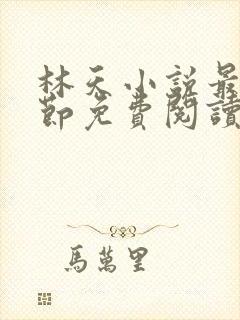 林天小説最
節免費閱讀
馬萬里